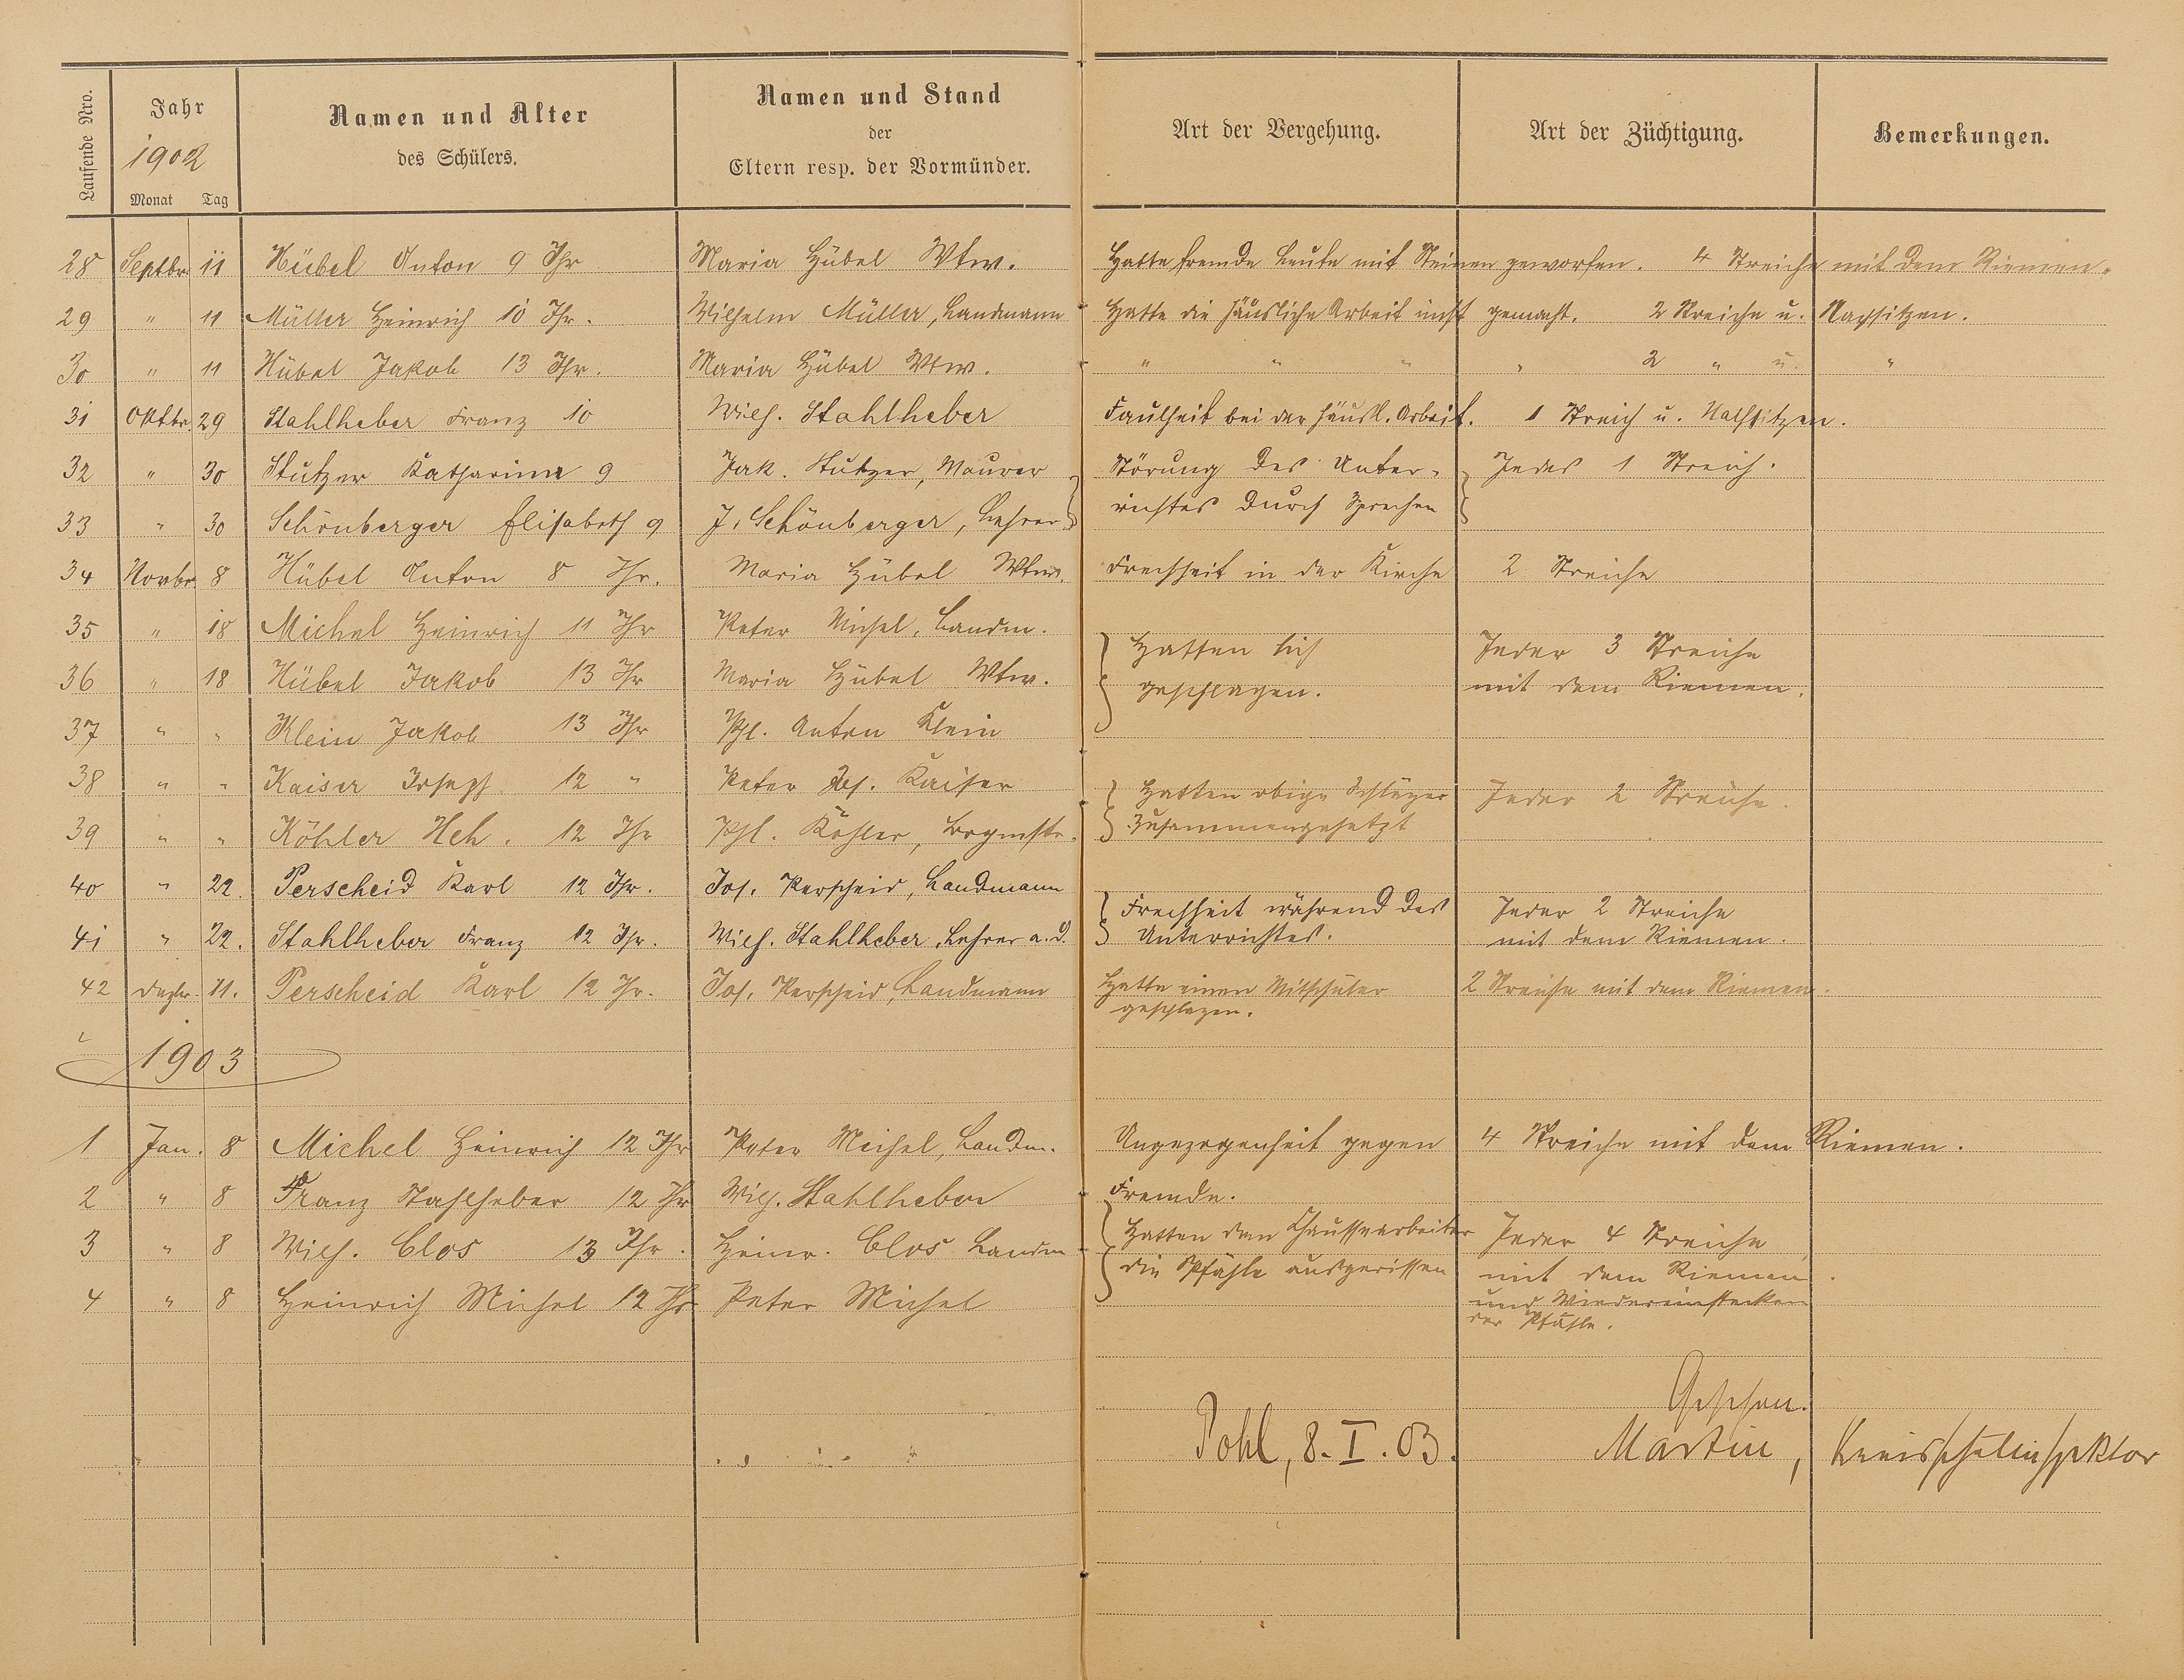 Laufende Nro.
Jahr
1902
Monat Tag
Namen und Alter
des Schülers.
Namen und Stand
der
Eltern resp. der Vormünder.
Art der Vergehung.
Art der Züchtigung.
Bemerkungen.
28 Septbr. 11 Hübel Anton 9 Jhr Maria Hübel Wtw. Hatte fremde Leute mit Steinen geworfen. 4 Streiche mit dem Riemen.
29 " 11 Müller Heinrich 10 Jhr. Wilhelm Müller, Landmann Hatte die häusliche Arbeit nicht gemacht. 2 Streiche u. Nachsitzen.
30 " 11 Hübel Jakob 13 Jhr. Maria Hübel Wtw. " " " " 2 " u. "
31 Oktbr. 29 Stahlheber Franz 10 Wilh. Stahlheber Faulheit bei der häusl. Arbeit. 1 Streich u. Nachsitzen.
32 " 30 Stutzer Katharina 9 Jak. Stutzer, Maurer Störung des Unter- Jedes 1 Streich.
33 " 30 Schönberger Elisabeth 9 J. Schönberger, Lehrer richtes durch Sprechen
34 Novbr 8 Hübel Anton 8 Jhr. Maria Hübel Wtw. Frechheit in der Kirche 2 Streiche
35 " 18 Michel Heinrich 11 Jhr Peter Michel, Landm. Hatten sich Jeder 3 Streiche
36 " 18 Hübel Jakob 13 Jhr Maria Hübel Wtw. geschlagen. mit dem Riemen.
37 " " Klein Jakob 13 Jhr Phl. Anton Klein
38 " " Kaiser Joseph 12 " Peter Jos. Kaiser Hatten obige Schläger Jeder 2 Streiche.
39 " " Köhler Hch. 12 Jhr Phl. Köhler, Bürgmstr. zusammengehetzt
40 " 22. Perscheid Karl 12 Jhr. Jos. Perscheid, Landmann Frechheit während des Jeder 2 Streiche
41 " 22. Stahlheber Franz 12 Jhr. Wilh. Stahlheber, Lehrer a. D. Unterrichtes. mit dem Riemen.
42 Dezbr. 11. Perscheid Karl 12 Jhr. Jos. Perscheid, Landmann Hatte einen Mitschüler 2 Streiche mit dem Riemen.
geschlagen.
1903
1 Jan. 8 Michel Heinrich 12 Jhr Peter Michel, Landm. Ungezogenheit gegen 4 Streiche mit dem Riemen.
2 " 8 Franz Stahlheber 12 Jhr Wilh. Stahlheber Fremde.
3 " 8 Wilh. Clos 13 Jhr. Heinr. Clos Landm Hatten den Chausseearbeiter Jeder 4 Streiche
die Pfähle ausgerissen mit dem Riemen.
4 " 8 Heinrich Michel 12 Jhr Peter Michel und Wiedereinstecken
der Pfähle.
Gesehen.
Pohl, 8. I. 03. Martin, Kreisschulinspektor